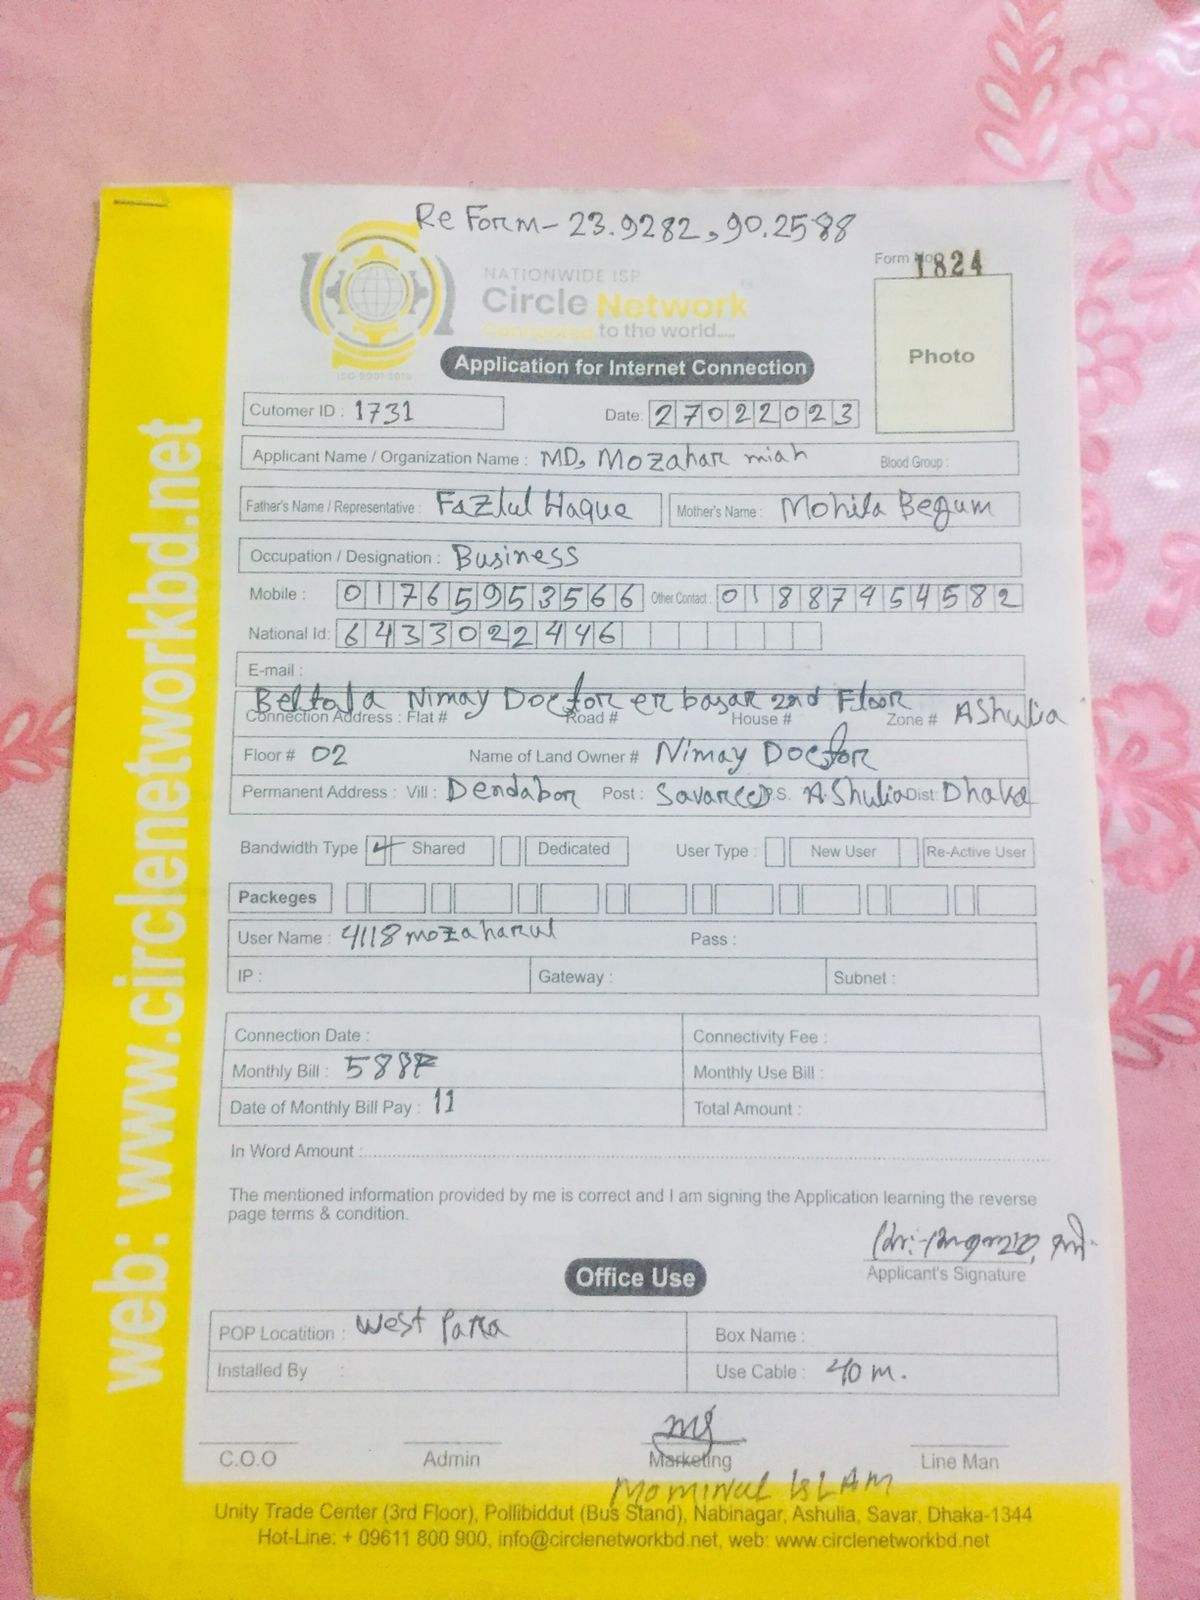 Re Form - 23.9282, 90.2588
Form No. 1824
NATIONWIDE ISP
Circle Network
Connected to the world....
ISO 9001:2015
Photo
Application for Internet Connection
Cutomer ID : 1731
Date: 27022023
Applicant Name / Organization Name : MD, Mozahar miah Blood Group :
Father's Name / Representative : Fazlul Haque Mother's Name : Mohila Begum
Occupation / Designation : Business
Mobile : 01765953566 Other Contact : 01887454582
National Id: 6433022446
E-mail :
Beltola Nimay Doctor er basar 2nd Floor
Connection Address : Flat # Road # House # Zone # AShulia
Floor # 02 Name of Land Owner # Nimay Doctor
Permanent Address : Vill : Dendabor Post : Savar P.S. AShulia Dist: Dhaka
Bandwidth Type Shared Dedicated User Type : New User Re-Active User
Packeges
User Name : 4118mozaharul Pass :
IP : Gateway : Subnet :
Connection Date : Connectivity Fee :
Monthly Bill : Monthly Use Bill :
Date of Monthly Bill Pay : 11 Total Amount :
In Word Amount :
The mentioned information provided by me is correct and I am signing the Application learning the reverse
page terms & condition.
Applicant's Signature
Office Use
POP Locatition : West Para Box Name :
Installed By : Use Cable : 40 m.
C.O.O Admin Marketing Line Man
Mominul ISLAM
Unity Trade Center (3rd Floor), Pollibiddut (Bus Stand), Nabinagar, Ashulia, Savar, Dhaka-1344
Hot-Line: + 09611 800 900, info@circlenetworkbd.net, web: www.circlenetworkbd.net
web: www.circlenetworkbd.net